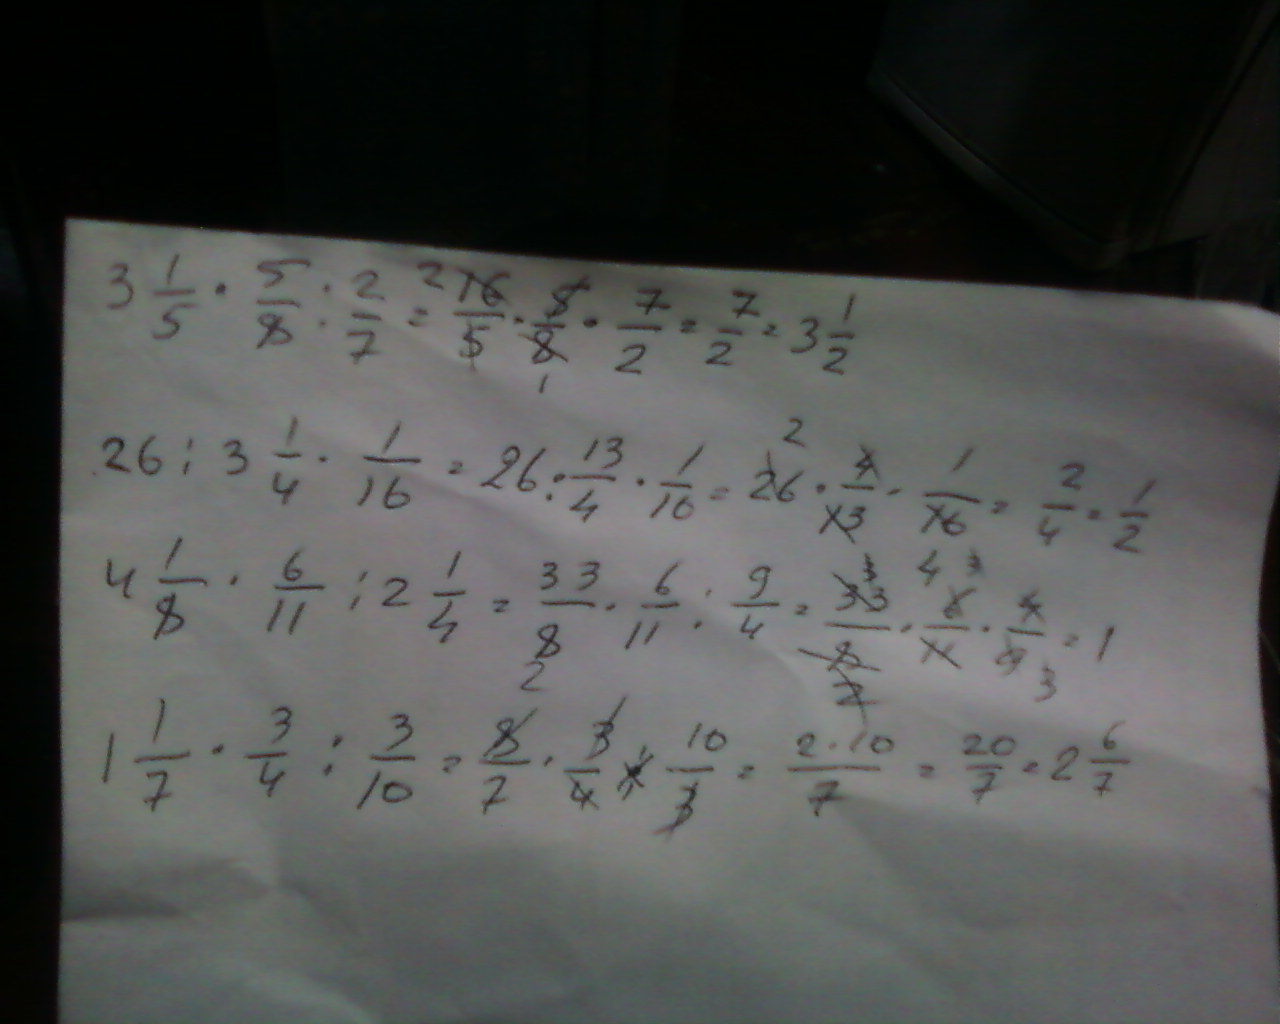 3 1/5 · 5/8 : 2/7 = 16/5 · 5/8 · 7/2 = 7/2 = 3 1/2
26 : 3 1/4 · 1/16 = 26 : 13/4 · 1/16 = 26 · 4/13 · 1/16 = 2/4 = 1/2
4 1/8 · 6/11 : 2 1/4 = 33/8 · 6/11 : 9/4 = 33/8 · 6/11 · 4/9 = 1
1 1/7 · 3/4 : 3/10 = 8/7 · 3/4 · 10/3 = 2·10/7 = 20/7 = 2 6/7